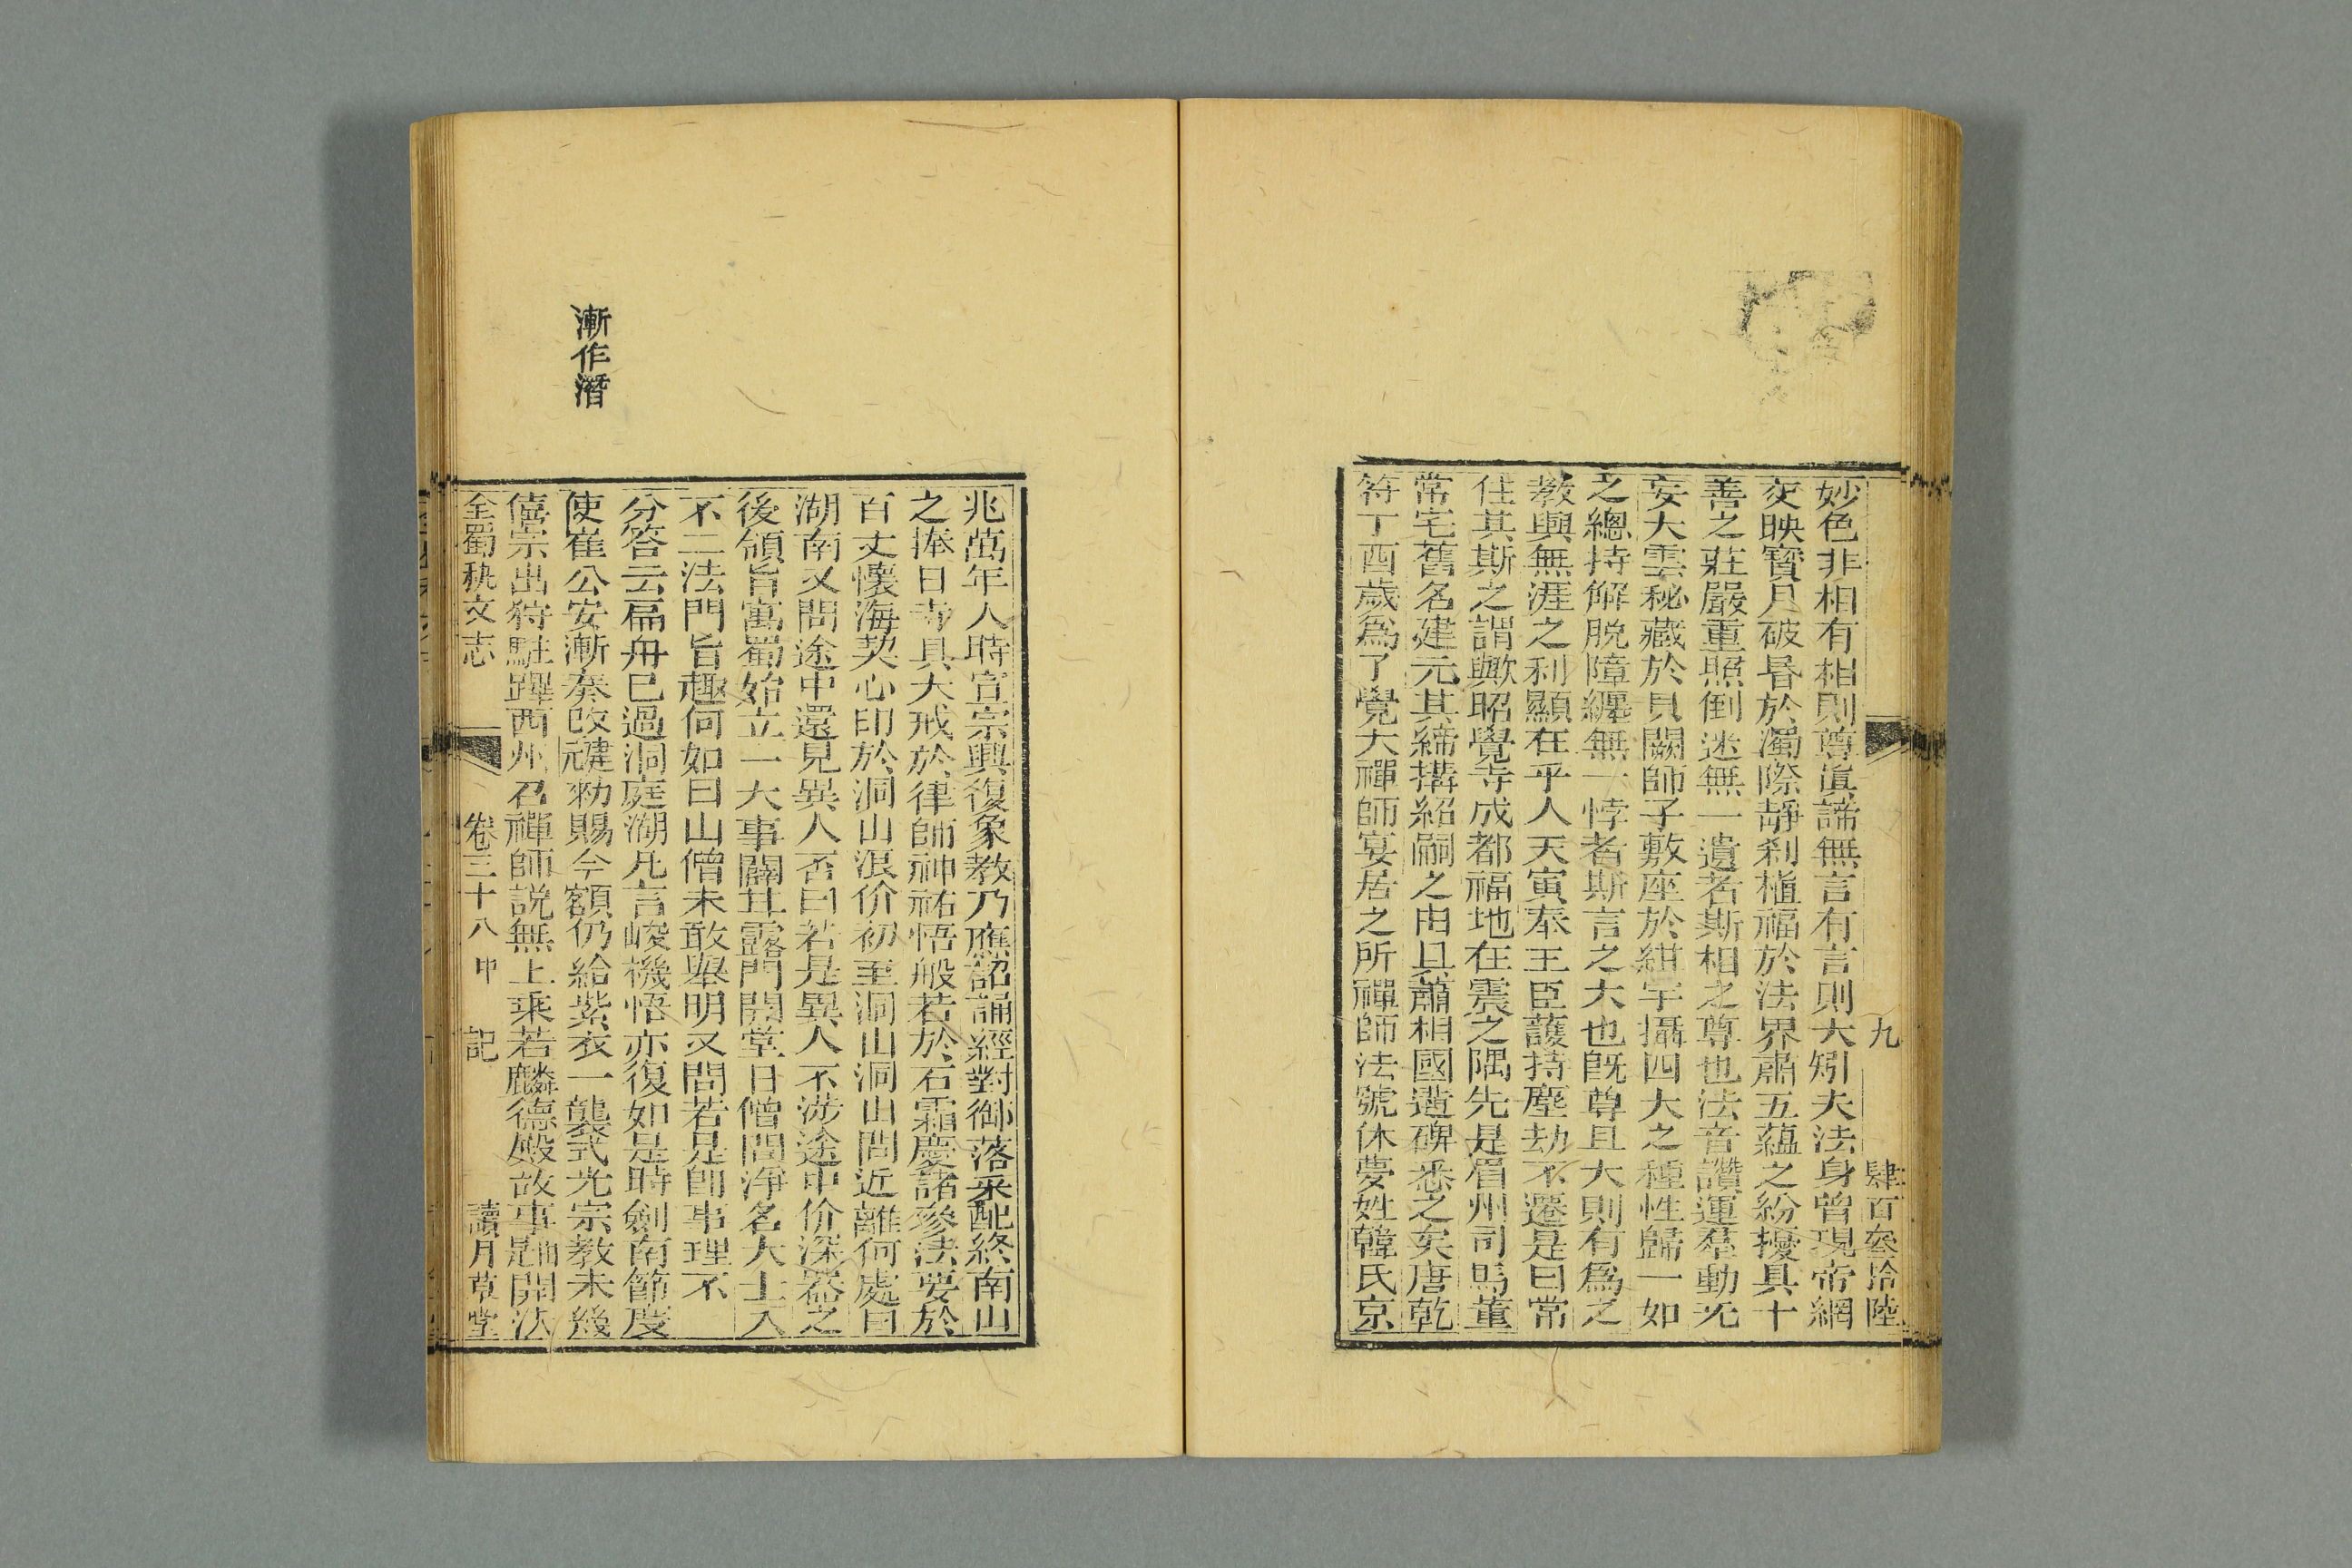 九　肆百叁拾陸
妙色非相有相則尊眞諦無言有言則大矧夫法身曾現帝網
交映寶月破昬於濁際靜刹植福於法界肅五蘊之紛擾具十
善之莊嚴重照倒迷無一遺者斯相之尊也法音讚運羣動无
妄大雲秘藏於貝闕師子敷座於紺宇攝四大之種性歸一如
之總持解脱障纒無一悖者斯言之大也旣尊且大則有爲之
教興無涯之利顯在乎人天寅奉王臣護持塵劫不遷是曰常
住其斯之謂歟昭覺寺成都福地在震之隅先是眉州司馬董
常宅舊名建元其締搆紹嗣之由且蕭相國遘碑悉之矣唐乾
符丁酉歲爲了覺大禪師宴居之所禪師法號休夢姓韓氏京
兆萬年人時宣宗興復象教乃應詔誦經對御落采配終南山
之捧日寺具大戒於律師神祐悟般若於石霜慶諸參法要於
百丈懷海契心印於洞山浪价初至洞山洞山問近離何處曰
湖南又問途中還見異人否曰若是異人不涉途中价深器之
後領旨寓蜀始立一大事闢甘露門開堂日僧問淨名大士入
不二法門旨趣何如曰山僧未敢舉明又問若是卽事理不
分答云扁舟已過洞庭湖凡言峻機悟亦復如是時劍南節度
使崔公安漸奏改禪勑賜今額仍給紫衣一襲式光宗教未幾
僖宗出狩駐蹕西州召禪師説無上乘若麟德殿故事由是開法
全蜀秇文志　卷三十八中　記　讀月草堂
漸作潛